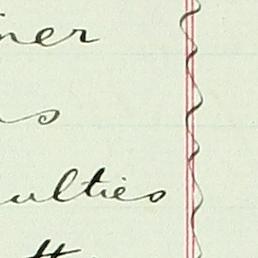 ner
s
ulties
tt